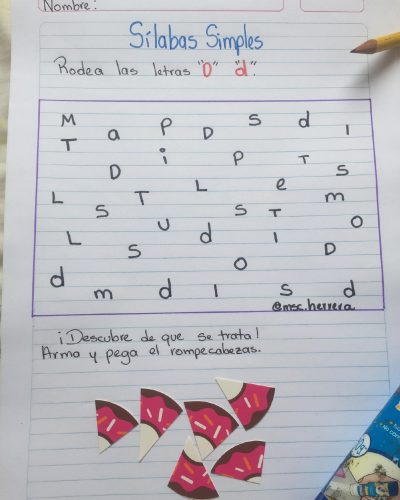 Nombre:
Sílabas Simples
Rodea las letras "D" "d".
M a P D S d I
T i P T S
D L e m
L S T S T O
L S U d I D
d m d I O S d
@msc.herrera
¡Descubre de que se trata!
Arma y pega el rompecabezas.